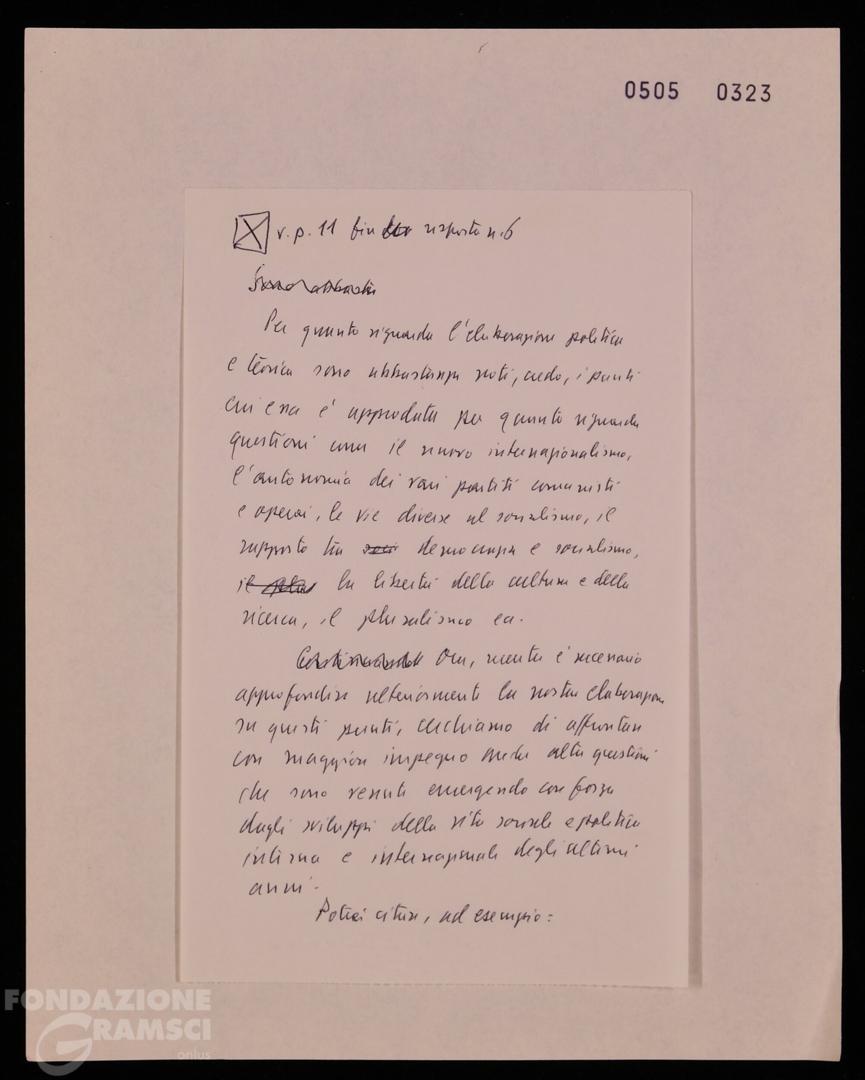 0505 0323
v.p. 11 fine risposta n. 6
Per quanto riguarda l'elaborazione politica
e teorica sono abbastanza noti, credo, i punti
cui essa è approdata per quanto riguarda
questioni come il nuovo internazionalismo,
l'autonomia dei vari partiti comunisti
e operai, le vie diverse al socialismo, il
rapporto tra democrazia e socialismo,
la libertà della cultura e della
ricerca, il pluralismo ecc.
Ora, mentre è necessario
approfondire ulteriormente la nostra elaborazione
su questi punti, cerchiamo di affrontare
con maggiore impegno anche altre questioni
che sono venute emergendo con forza
dagli sviluppi della vita sociale e politica
interna e internazionale degli ultimi
anni.
Potrei citare, ad esempio:
FONDAZIONE
GRAMSCI
onlus